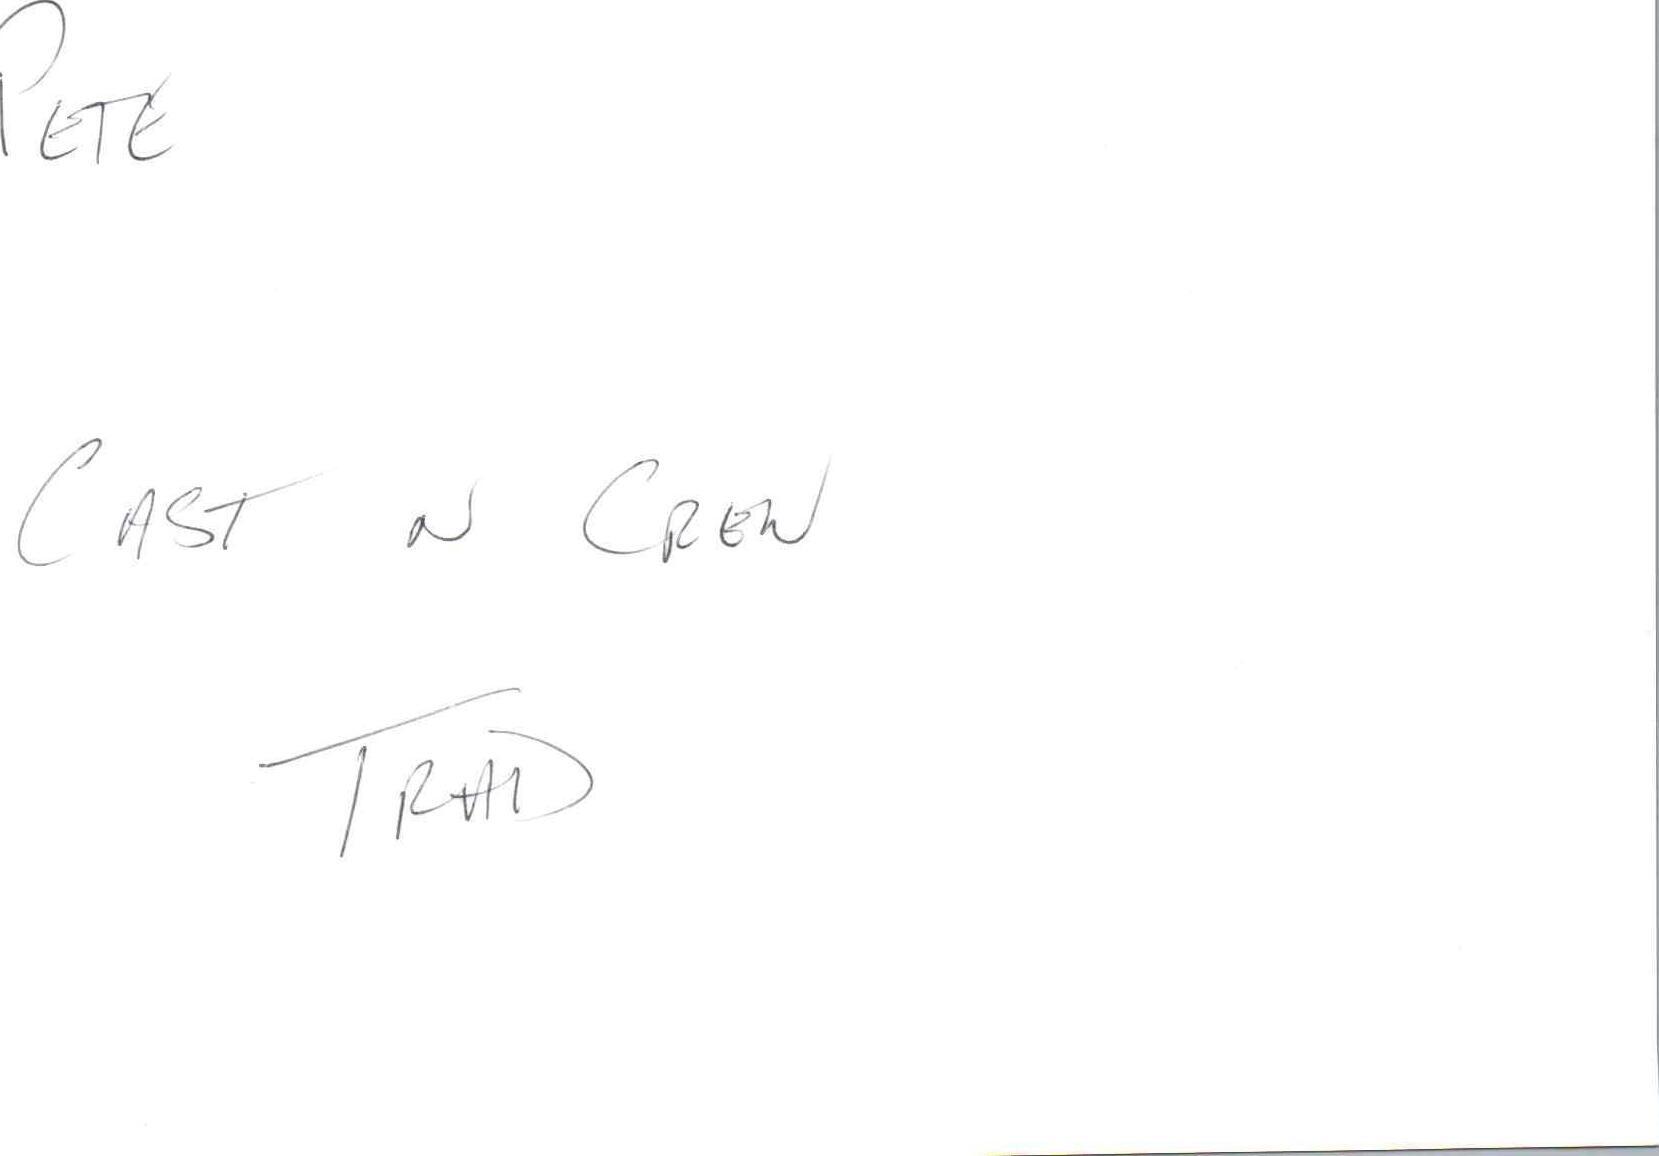 PETE
CAST N CREW
TRAD